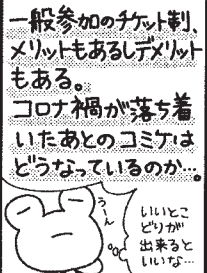 一般参加のチケット制、
メリットもあるしデメリット
もある。
コロナ禍が落ち着
いたあとのコミケは
どうなっているのか…。
うーん
いいとこ
どりが
出来ると
いいな…